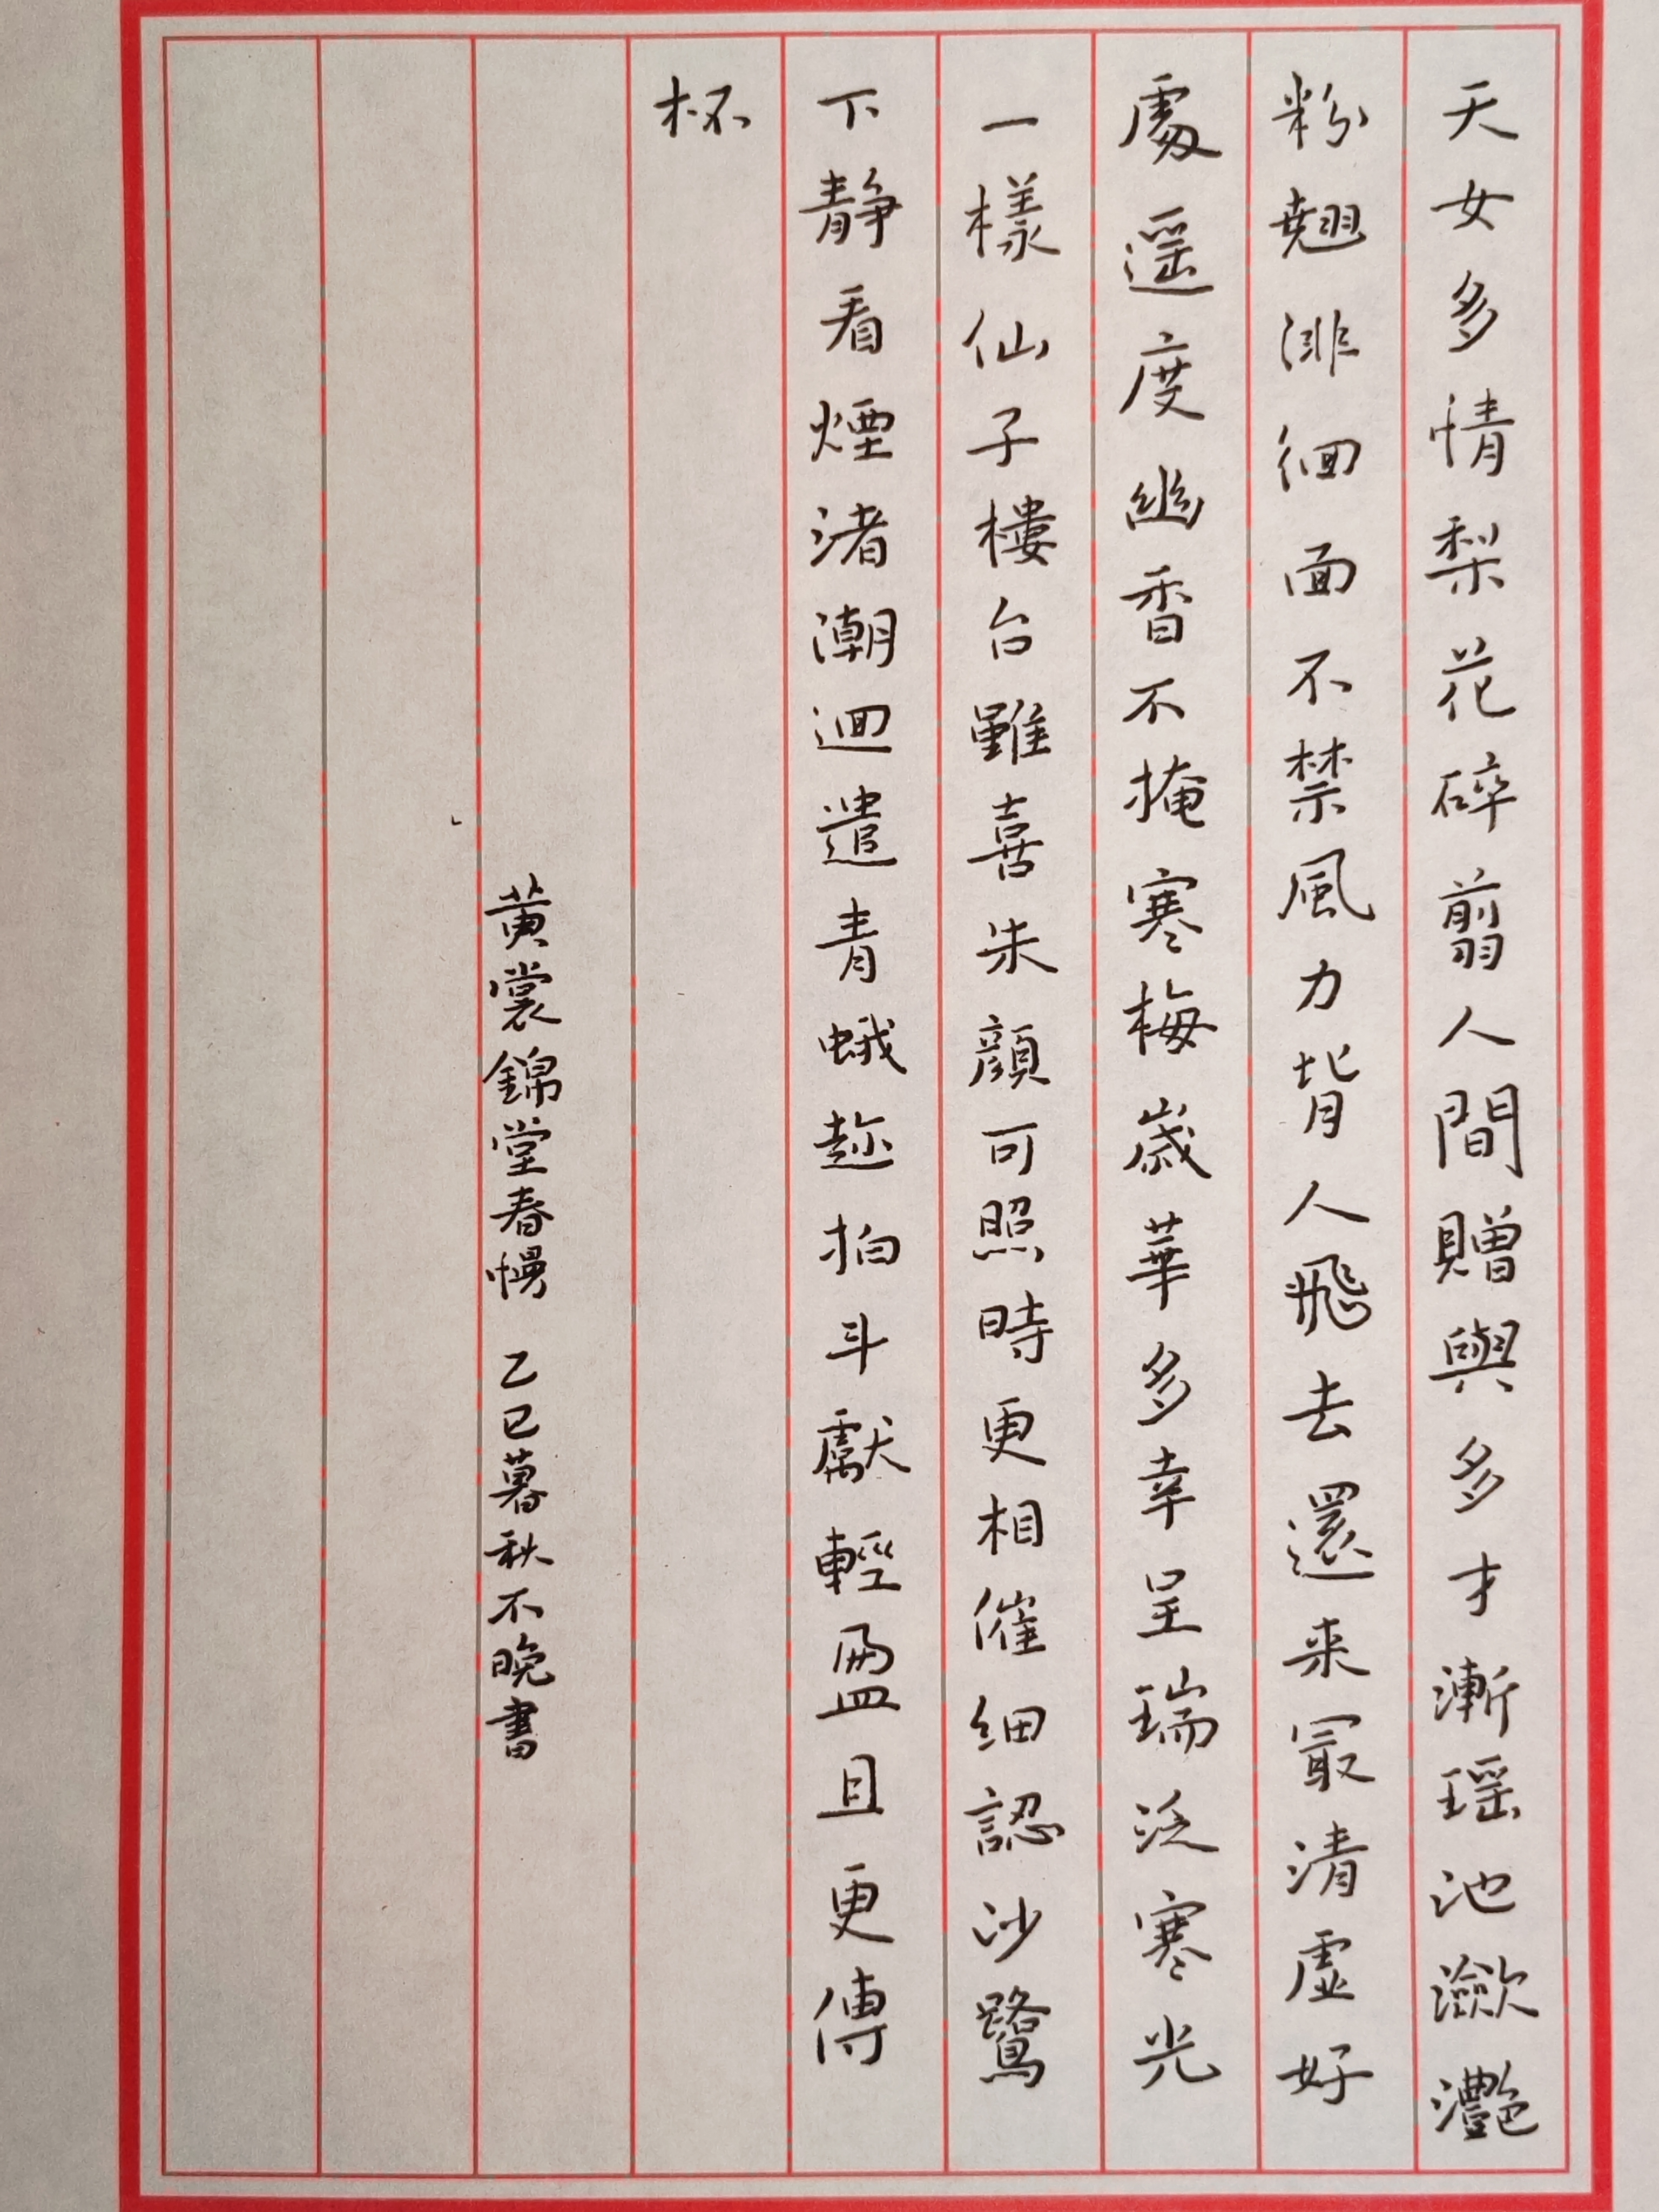 天女多情梨花碎翦人間贈與多才漸瑶池瀲灧
粉翹徘徊面不禁風力背人飛去還来冣清虛好
處遥度幽香不掩寒梅歲華多幸呈瑞泛寒光
一樣仙子樓台雖喜朱顔可照時更相催細認沙鷺
下静看煙渚潮迴遣青蛾趂拍斗獻輕盈且更傳
杯
黄裳錦堂春慢 乙巳暮秋不晚書